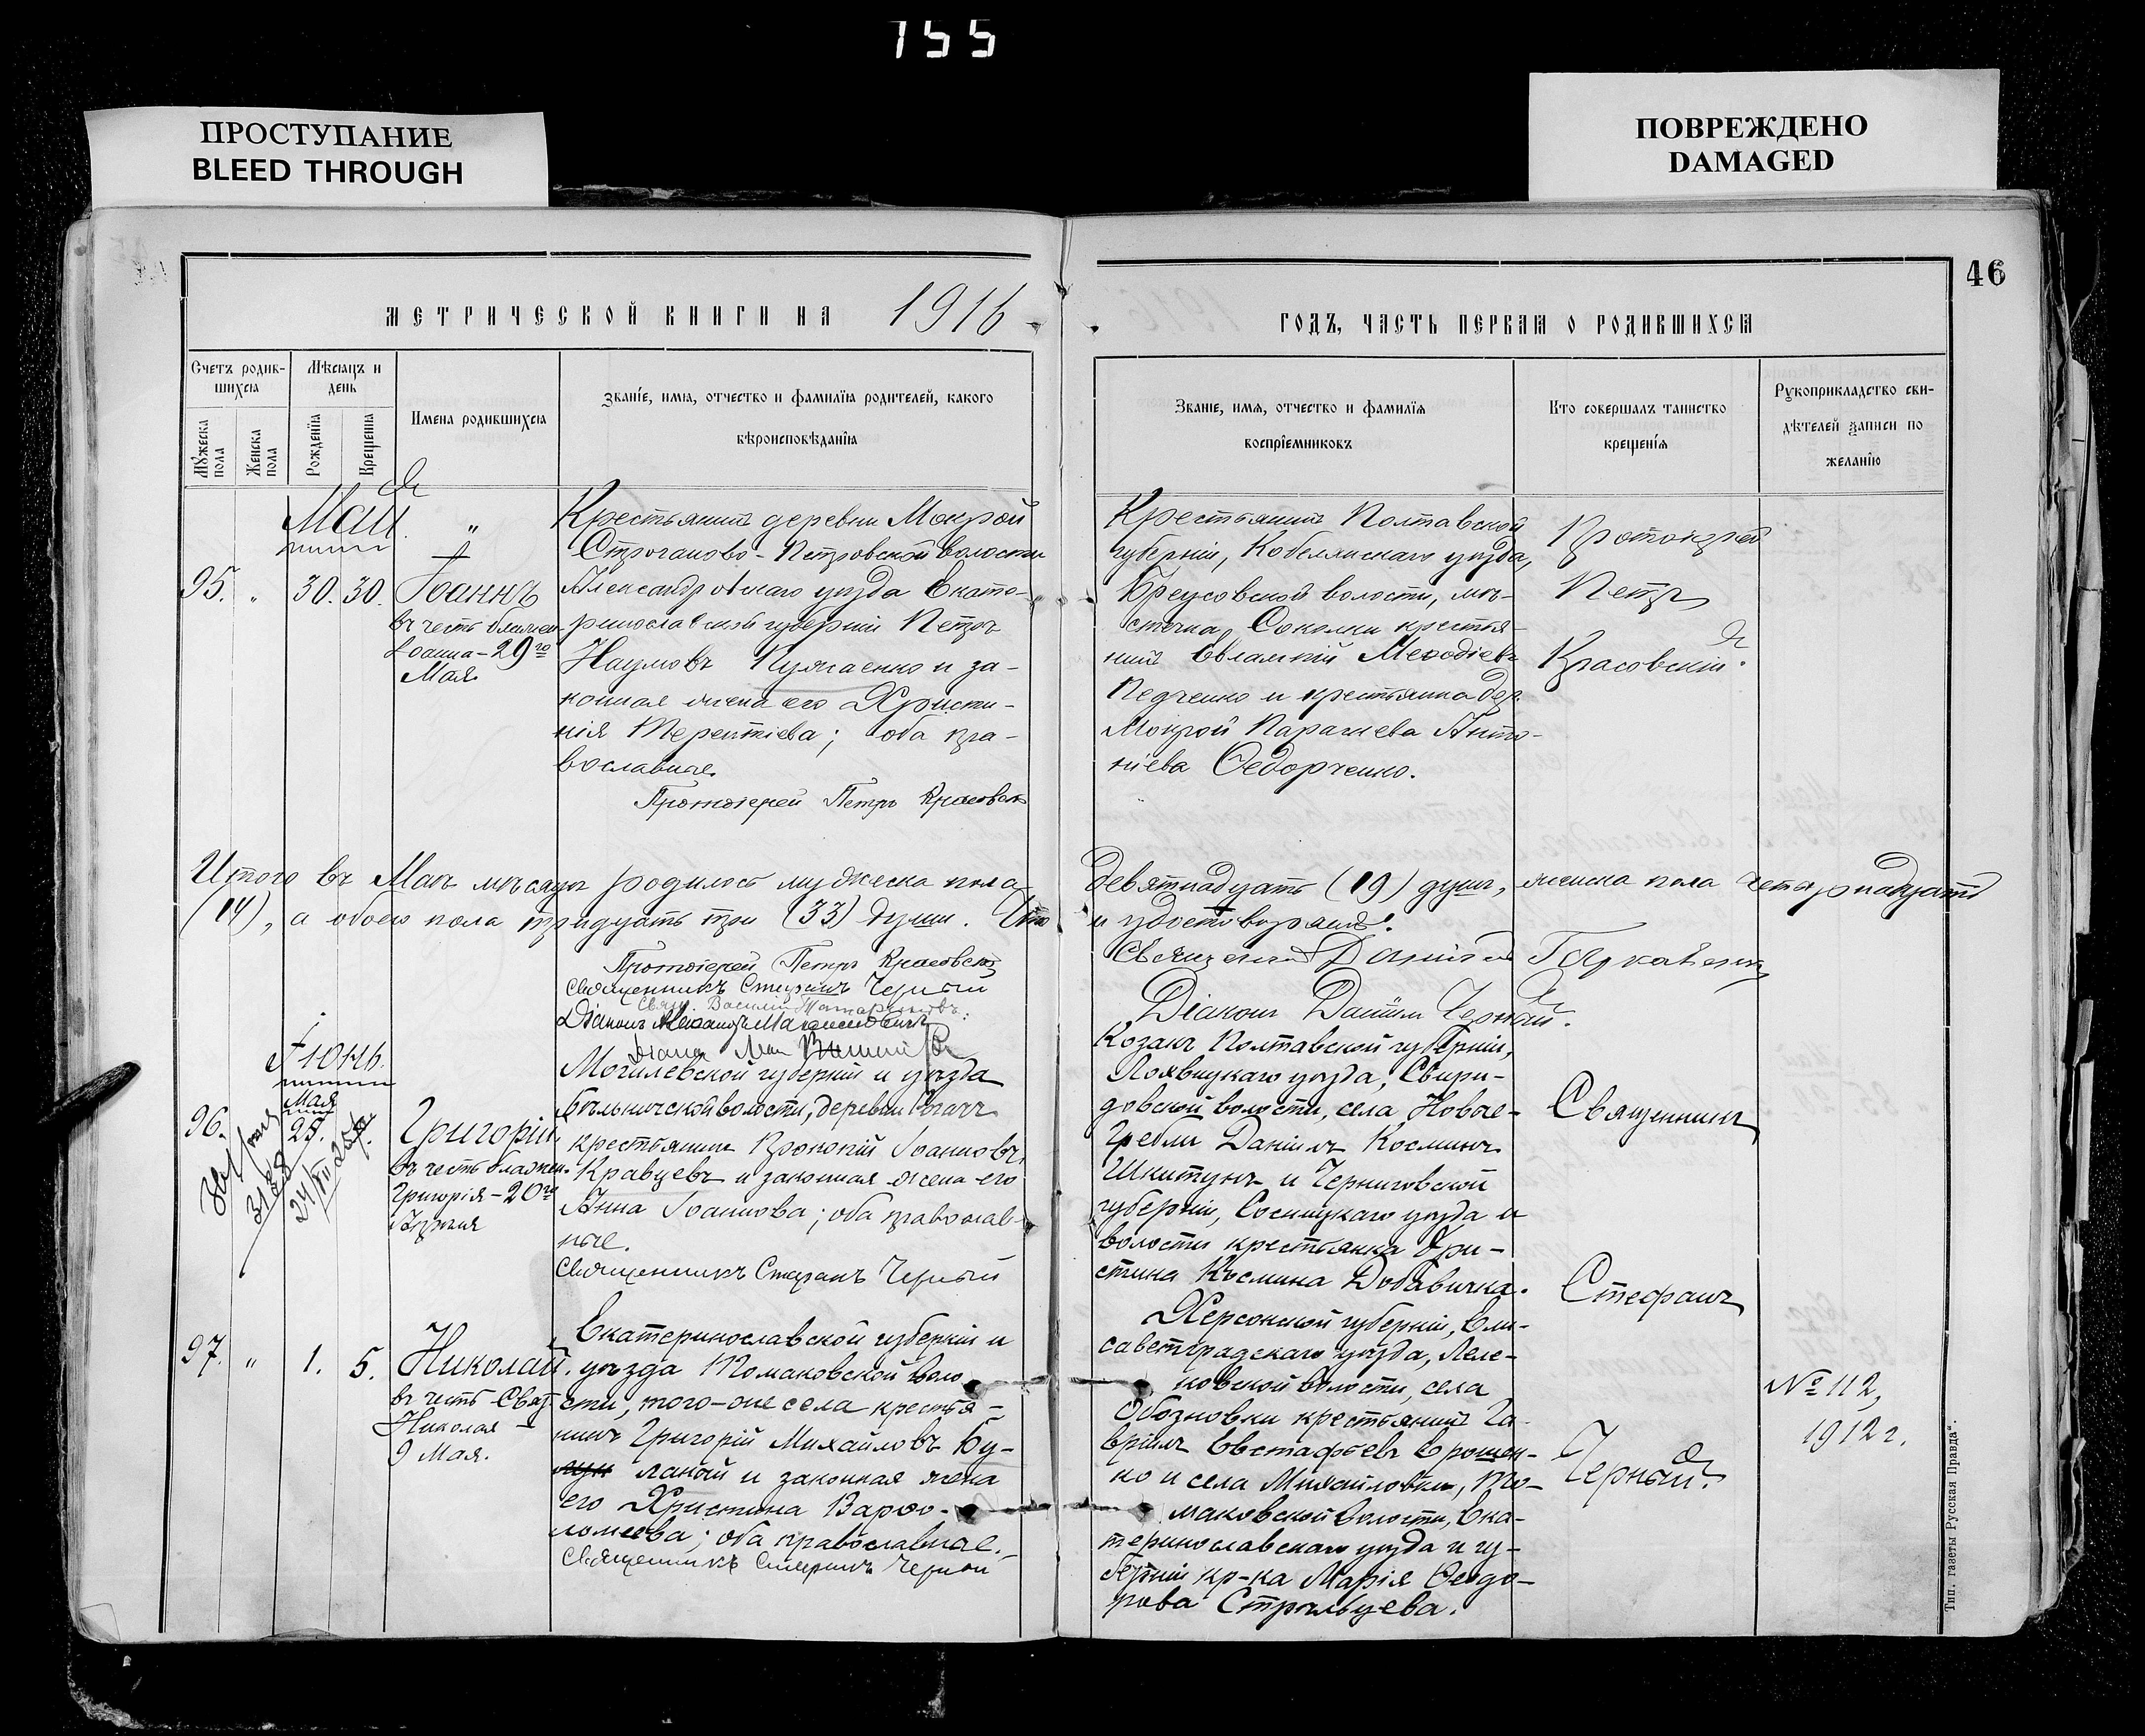 155
ПРОСТУПАНИЕ
BLEED THROUGH
ПОВРЕЖДЕНО
DAMAGED
46
МЕТРИЧЕСКОЙ КНИГИ НА 1916
ГОДЪ, ЧАСТЬ ПЕРВАЯ О РОДИВШИХСЯ
Счетъ родив-
шихся
Мѣсяцъ и
день
Мужеска пола
Женска пола
Рожденїя
Крещенїя
Имена родившихся
Званїе, имя, отчество и фамилїя родителей, какого
вѣроисповѣданїя
Званїе, имя, отчество и фамилїя
воспрїемниковъ
Кто совершалъ таинство
крещенїя
Рукоприкладство сви-
дѣтелей записи по
желанїю
Май
95. " 30. 30. Іоаннъ
въ честь блажен.
Іоанна - 29го
Мая.
Крестьянинъ деревни Мокрой
Строганово-Петровской волости
Александровскаго уѣзда Екате-
ринославской губерніи Петръ
Наумовъ и за-
конная жена его Христи-
нія Терентіева; оба пра-
вославные.
Протоіерей Петръ Красовскій
Крестьянинъ Полтавской
губерніи, Кобелякскаго уѣзда,
Бреусовской волости, мѣ-
стечка Соколки крестья-
нинъ Евлампій Меѳодіевъ
Педченко и крестьянка дер.
Мокрой Параскева Анто-
ніева Ѳедорченко.
Протоіерей
Петръ
Красовскій.
Итого въ Маѣ мѣсяцѣ родилось мужеска пола девятнадцать (19) душъ, женска пола четырнадцать
(14), а обоего пола тридцать три (33) души. Что и удостовѣряемъ.
Протоіерей Петръ Красовскій
Священникъ Стефанъ Черный
Свящ. Василій
Діаконъ
Священникъ Даніилъ
Діаконъ Даніилъ Черный.
Іюнь.
Мая
96. 25. Григорій
въ честь блажен.
Григорія - 20го
Могилевской губерніи и уѣзда
волости, деревни
крестьянинъ Прокопій Іоанновъ
Кравцевъ и законная жена его
Анна Іоаннова; оба православ-
ные.
Священникъ Стефанъ Черный
Козакъ Полтавской губерніи,
Лохвицкаго уѣзда, Свири-
довской волости, села Новое-
Гребли Даніилъ Косминъ
Шкитунъ и Черниговской
губерніи, Сосницкаго уѣзда и
волости крестьянка Хри-
стина Космина
Священникъ
Стефанъ
Черный.
97. " 1. 5. Николай
въ честь Свят.
Николая -
9 Мая.
Екатеринославской губерніи и
уѣзда Томаковской воло-
сти, того-же села крестья-
нинъ Григорій Михайловъ Бу-
ланый и законная жена
его Христина Варѳо-
ломеева; оба православные.
Священникъ Стефанъ Черный
Херсонской губерніи, Ели-
саветградскаго уѣзда, Леле-
ковской волости, села
Обозновки крестьянинъ Га-
вріилъ Евстафьевъ Ерошен-
ко и села Михайловки, То-
маковской волости, Ека-
теринославскаго уѣзда и гу-
берніи кр-ка Марія Ѳеодо-
рова Стрѣльцева.
№ 112,
1912 г.
Тип. газеты „Русская Правда“.